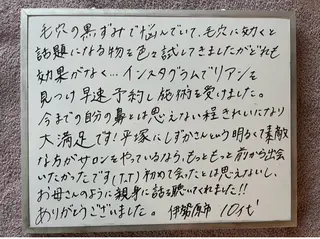 毛穴の黒ずみで悩んでいて、毛穴に効くと
話題になる物を色々試してきましたがどれも
効果がなく…インスタグラムでリアンを
見つけ早速予約し施術を受けました。
今までの自分の鼻とは思えない程きれいになり
大満足です!平塚にしずかさんという明るくて素敵
な方がサロンをやっているなら、もっともっと前から出会
いたかったです(T.T)初めて会ったとは思えないし、
お母さんのように親身に話を聴いてくれました!!
ありがとうございました。 伊勢原市 10代